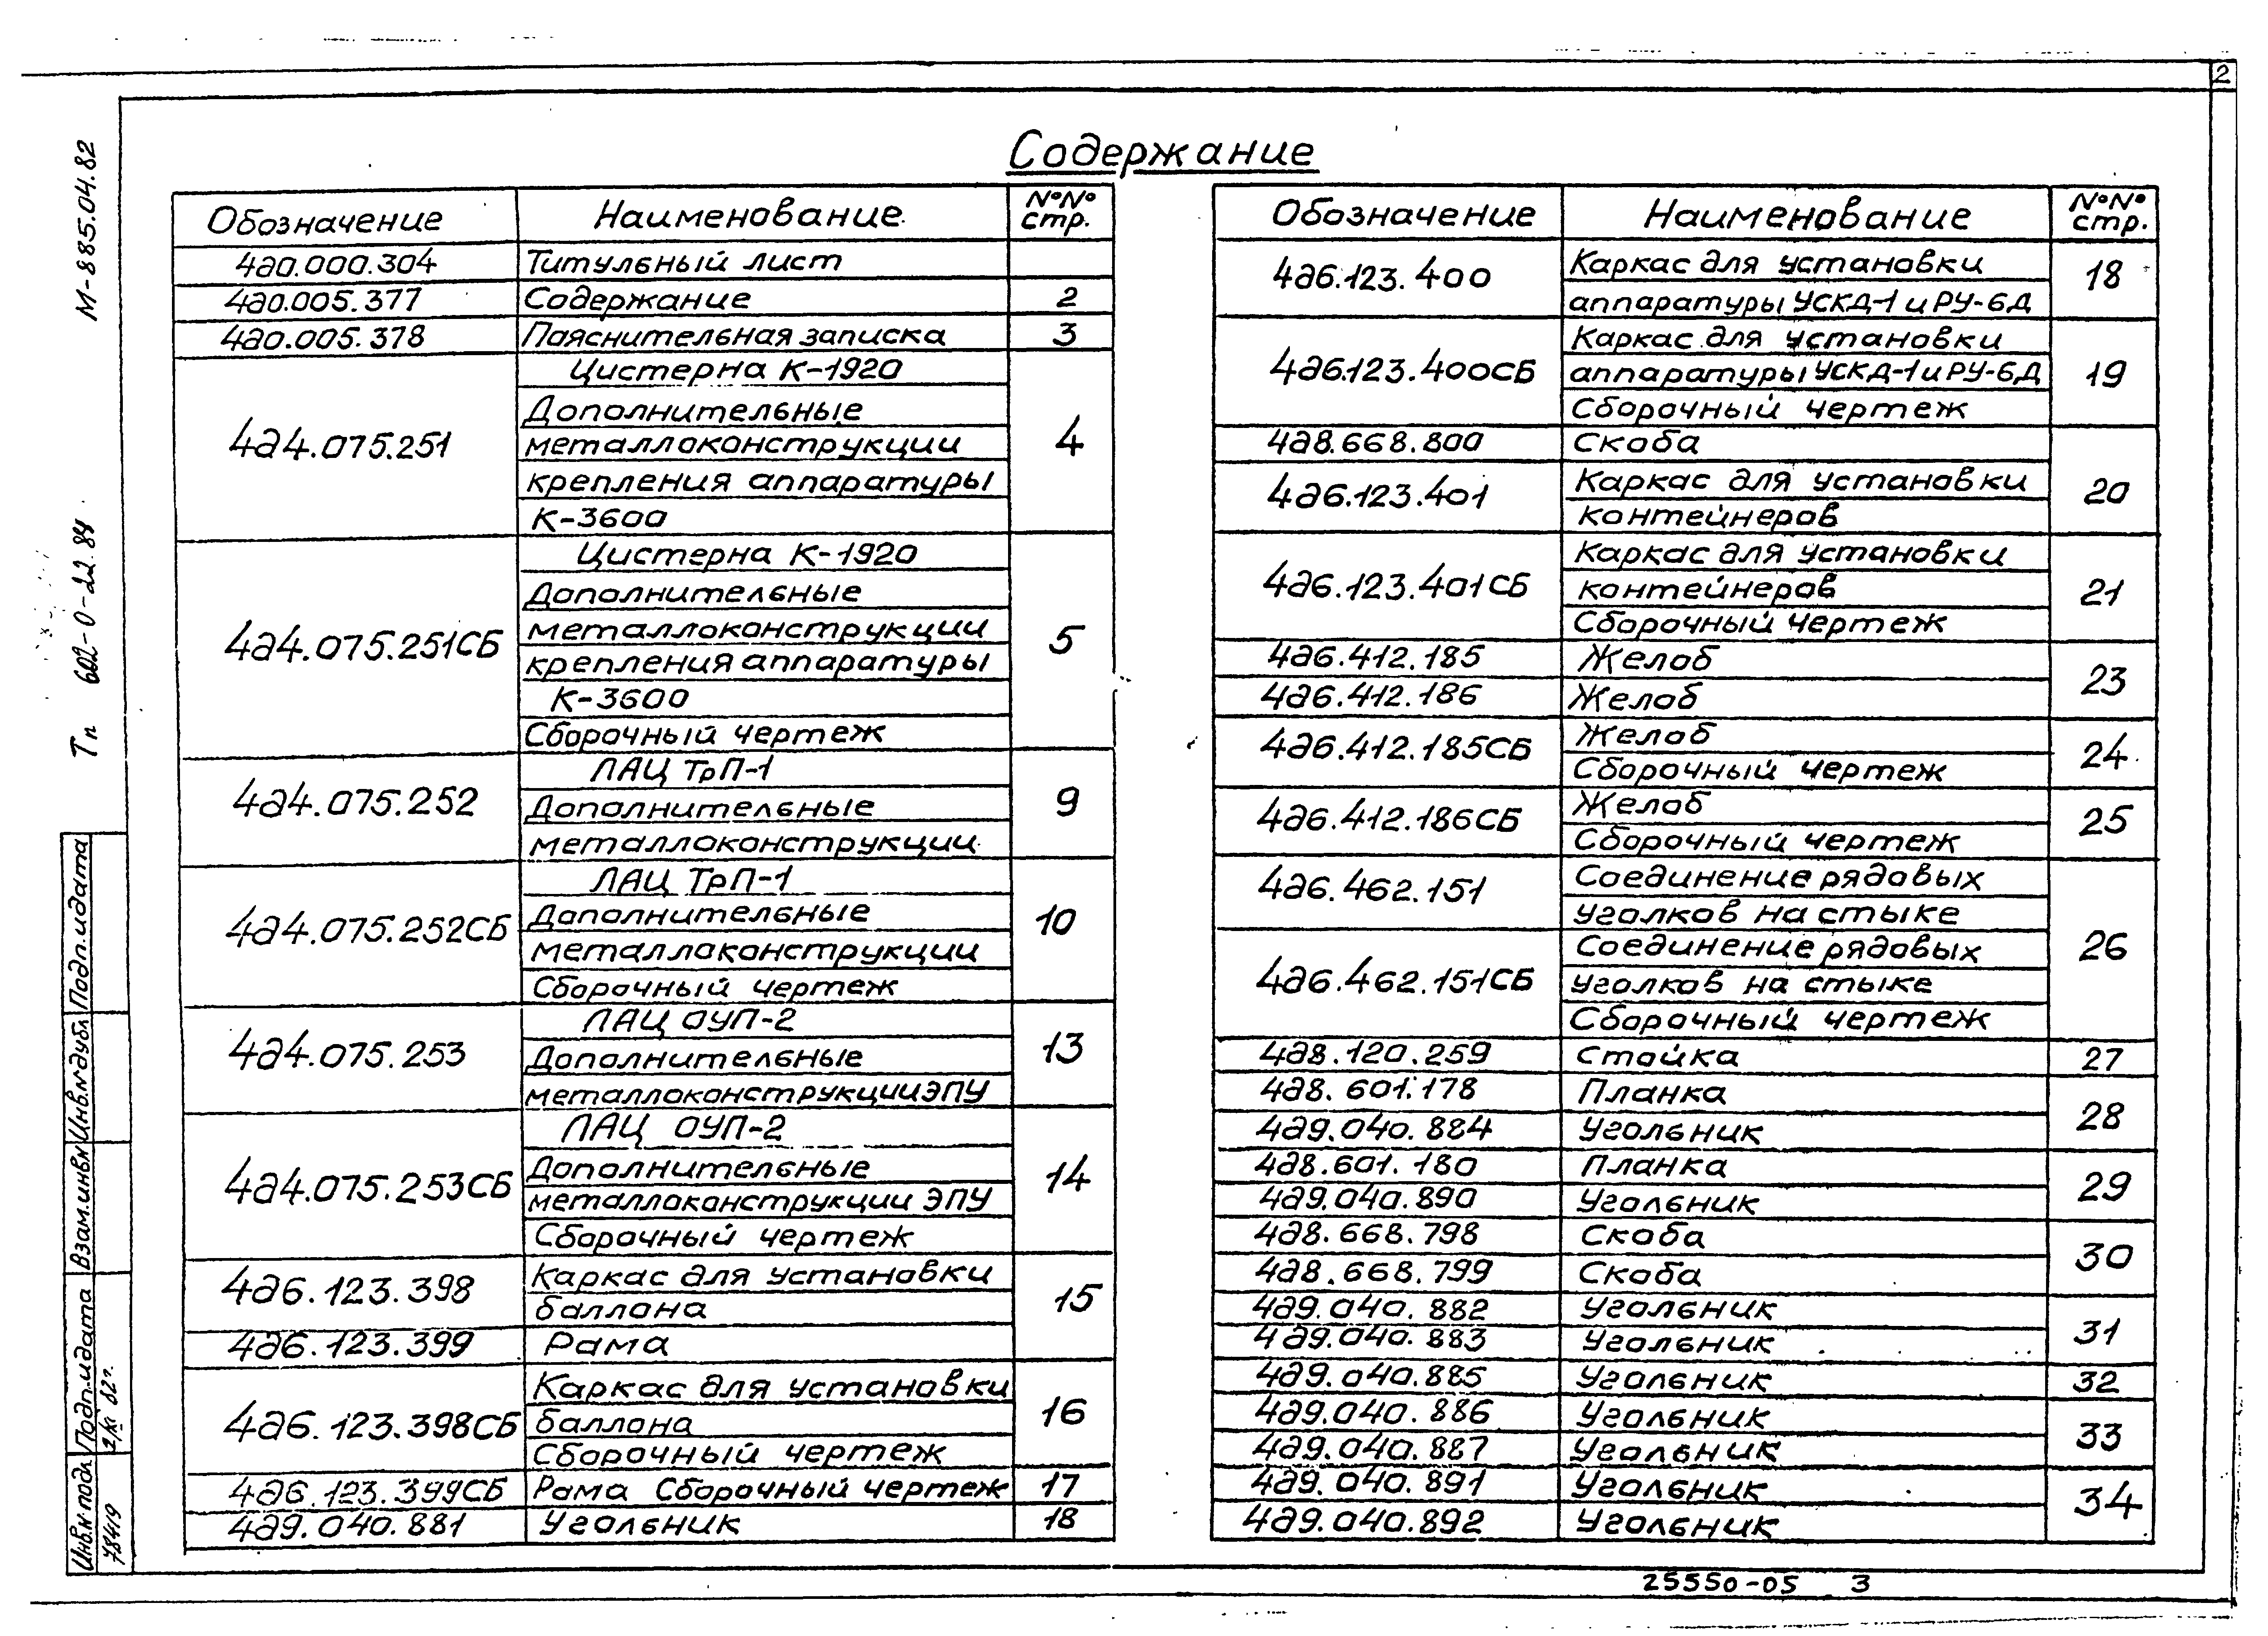 2
Содержание
Обозначение Наименование №№ стр.
4д0.000.304 Титульный лист
4д0.005.377 Содержание 2
4д0.005.378 Пояснительная записка 3
4д4.075.251 Цистерна К-1920 4
Дополнительные
металлоконструкции
крепления аппаратуры
К-3600
4д4.075.251СБ Цистерна К-1920 5
Дополнительные
металлоконструкции
крепления аппаратуры
К-3600
Сборочный чертеж
4д4.075.252 ЛАЦ ТрП-1 9
Дополнительные
металлоконструкции
4д4.075.252СБ ЛАЦ ТрП-1 10
Дополнительные
металлоконструкции
Сборочный чертеж
4д4.075.253 ЛАЦ ОУП-2 13
Дополнительные
металлоконструкции ЭПУ
4д4.075.253СБ ЛАЦ ОУП-2 14
Дополнительные
металлоконструкции ЭПУ
Сборочный чертеж
4д6.123.398 Каркас для установки 15
баллона
4д6.123.399 Рама
4д6.123.398СБ Каркас для установки 16
баллона
Сборочный чертеж
4д6.123.399СБ Рама Сборочный чертеж 17
4д9.040.881 Угольник 18
Обозначение Наименование №№ стр.
4д6.123.400 Каркас для установки 18
аппаратуры УСКД-1 и РУ-6Д
4д6.123.400СБ Каркас для установки 19
аппаратуры УСКД-1 и РУ-6Д
Сборочный чертеж
4д8.668.800 Скоба 20
4д6.123.401 Каркас для установки
контейнеров
4д6.123.401СБ Каркас для установки 21
контейнеров
Сборочный чертеж
4д6.412.185 Желоб 23
4д6.412.186 Желоб
4д6.412.185СБ Желоб 24
Сборочный чертеж
4д6.412.186СБ Желоб 25
Сборочный чертеж
4д6.462.151 Соединение рядовых 26
уголков на стыке
4д6.462.151СБ Соединение рядовых
уголков на стыке
Сборочный чертеж
4д8.120.259 Стойка 27
4д8.601.178 Планка 28
4д9.040.884 Угольник
4д8.601.180 Планка 29
4д9.040.890 Угольник
4д8.668.798 Скоба 30
4д8.668.799 Скоба
4д9.040.882 Угольник 31
4д9.040.883 Угольник
4д9.040.885 Угольник 32
4д9.040.886 Угольник 33
4д9.040.887 Угольник
4д9.040.891 Угольник 34
4д9.040.892 Угольник
М-885.04.82
Тп 602-0-22.84
Подп.и дата
Инв.№ дубл
Взам.инв№
Подп.и дата
Инв.№ подл
78419
25550-05 3